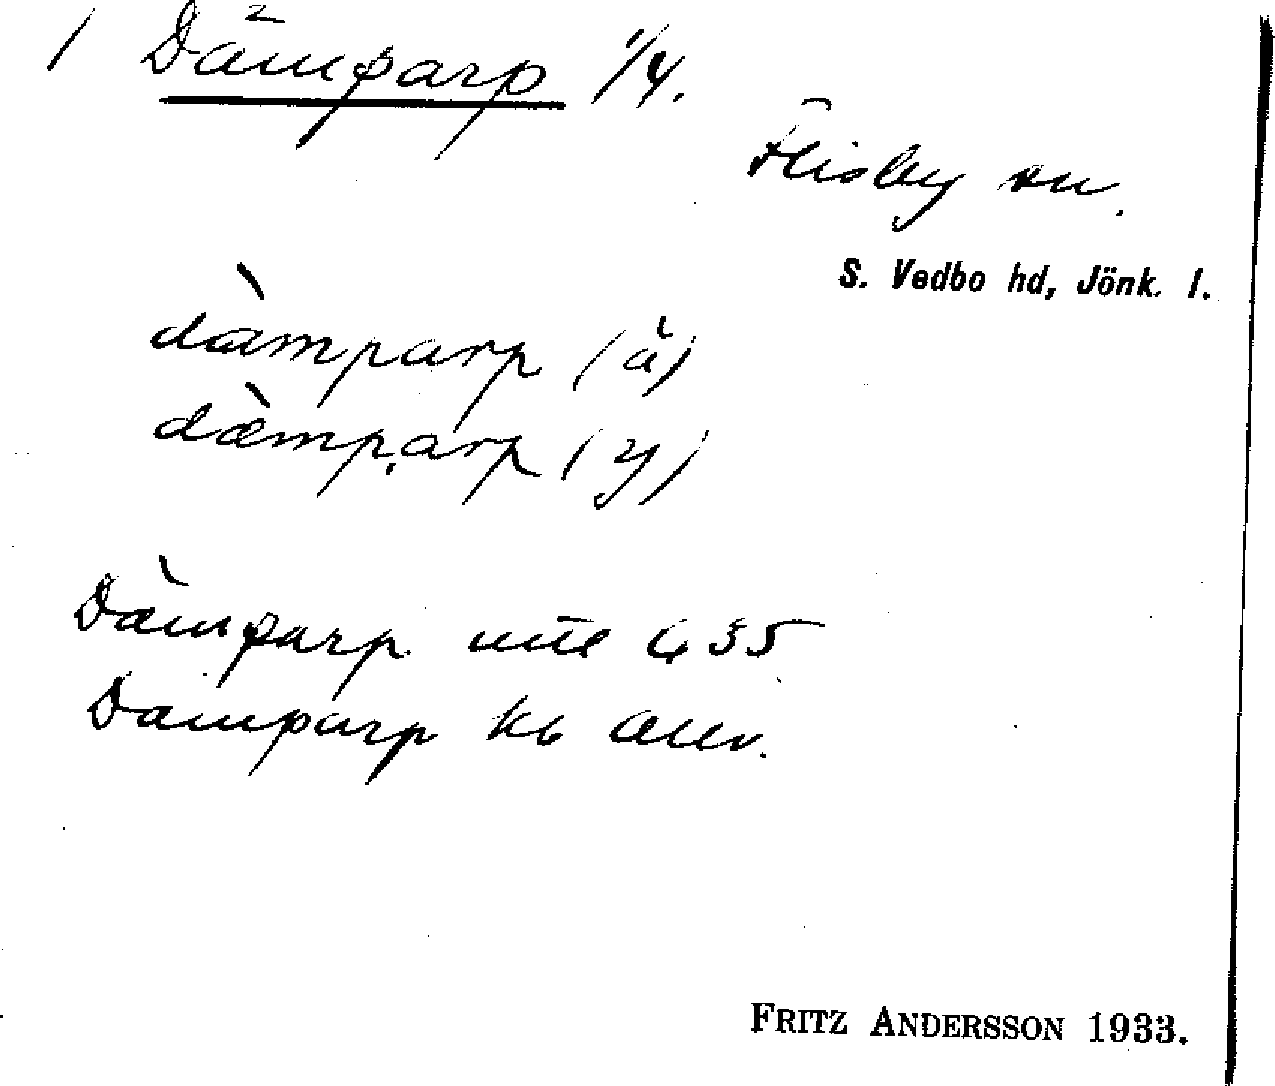 1 Dämparp 1/4.
Flisby sn.
S. Vedbo hd, Jönk. l.
dæ̀mparp (ä)
dæ̀mparp (y)
Dämparp 635
Dämparp kb
FRITZ ANDERSSON 1933.